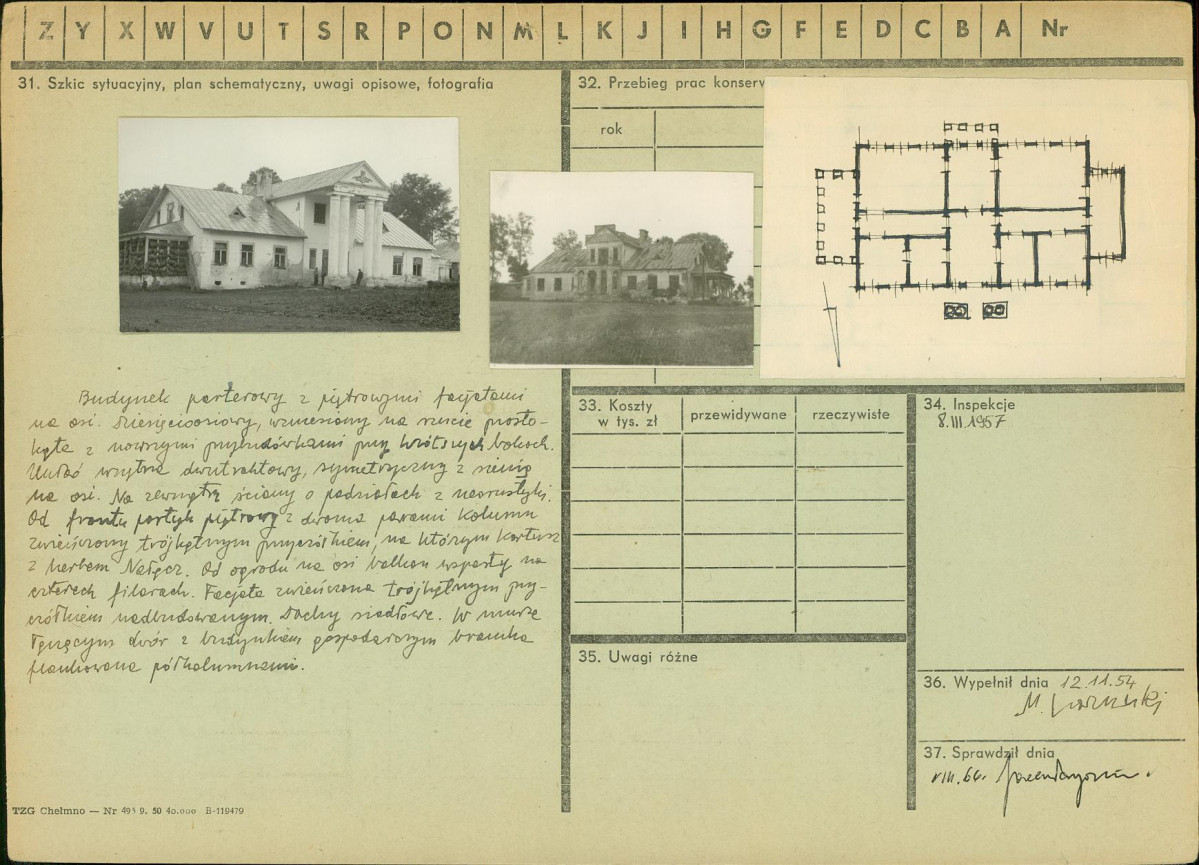 Z Y X W V U T S R P O N M L K J I H G F E D C B A Nr
31. Szkic sytuacyjny, plan schematyczny, uwagi opisowe, fotografia
Budynek parterowy z piętrowymi facjatami
na osi. Dziesięcioosiowy, wzniesiony na rzucie prosto-
kąta z nowszymi przybudówkami przy krótszych bokach.
Układ wnętrza dwutraktowy, symetryczny z sienią
na osi. Na zewnątrz ściany o podziałach z
Od frontu portyk piętrowy z dwoma parami kolumn
zwieńczony trójkątnym przyczółkiem, na którym kartusz
z herbem Nałęcz. Od ogrodu na osi balkon wsparty na
czterech filarach. Facjata zwieńczona trójkątnym przy-
czółkiem nadbudowanym. Dachy siodłowe. W murze
łączącym dwór z budynkiem gospodarczym bramka
flankowana półkolumnami.
TZG Chełmno — Nr 495 9. 50 40.000 B-119479
32. Przebieg prac konserw
rok
33. Koszty
w tys. zł
przewidywane
rzeczywiste
34. Inspekcje
8.III 1957
35. Uwagi różne
36. Wypełnił dnia 12.11.54
M.
37. Sprawdził dnia
VIII.66.